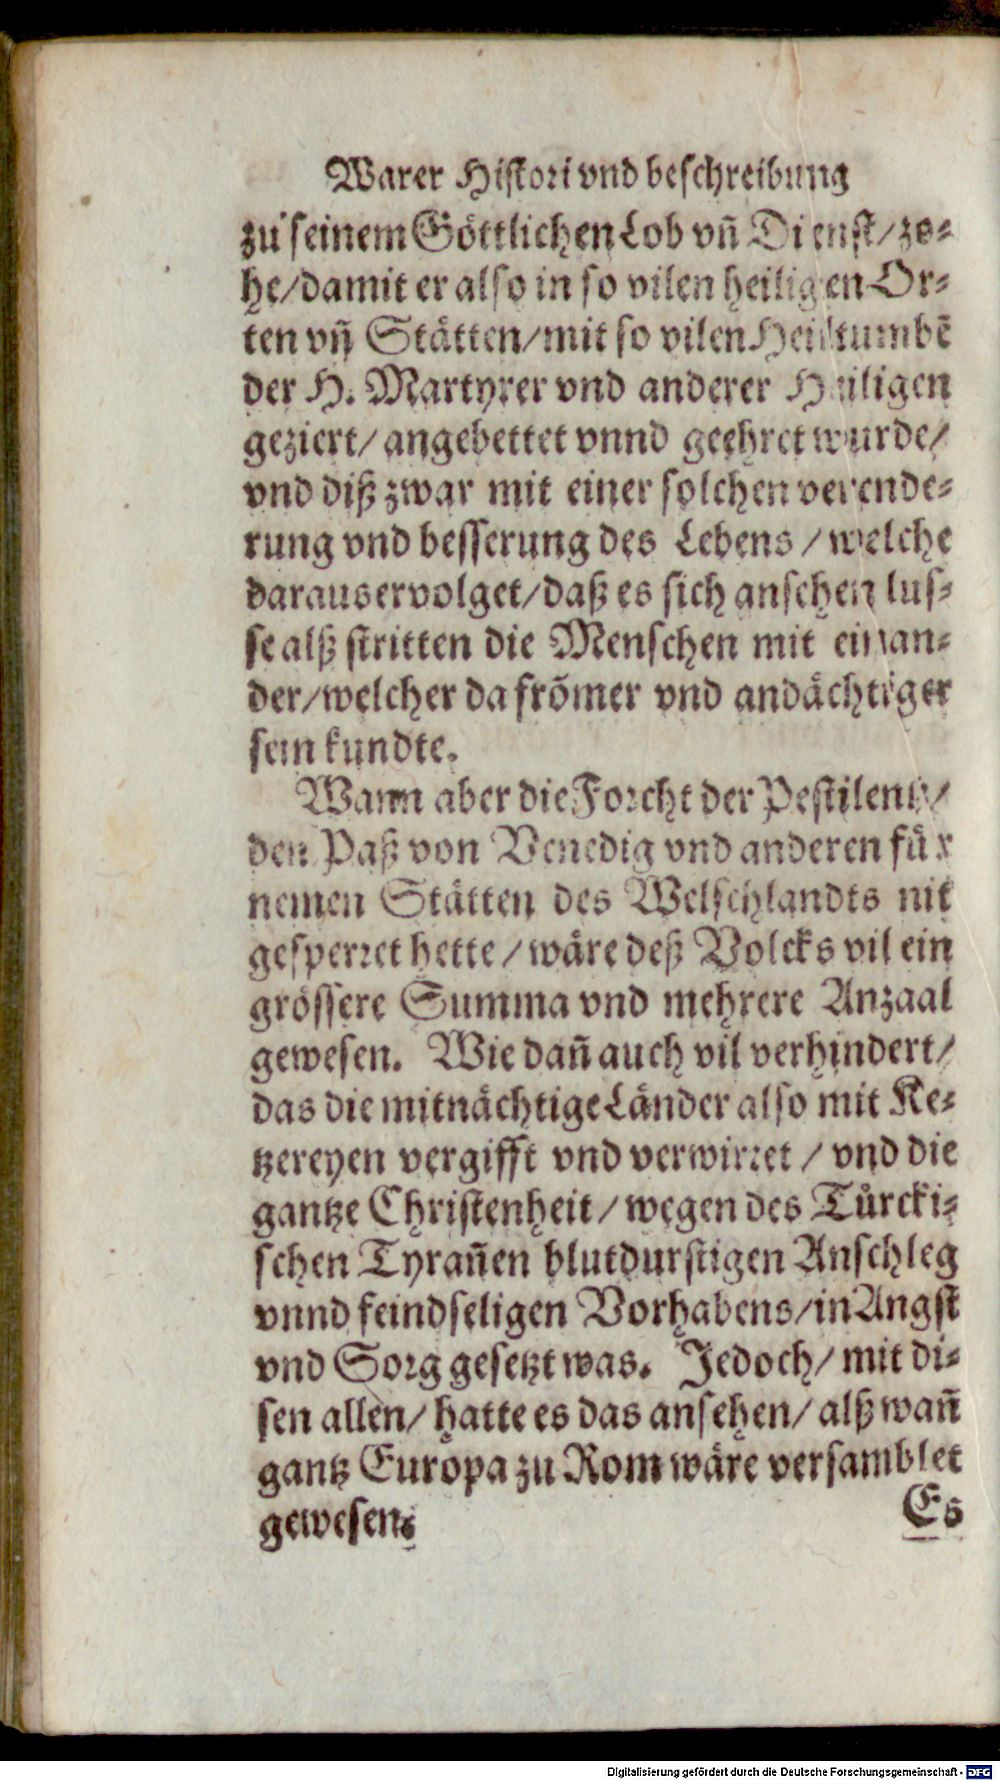 Warer Histori vnd beschreibung
zu seinem Göttlichen Lob vñ Dienst/ ze-
he/ damit er also in so vilen heiligen Or-
ten vñ Stätten/ mit so vilen Heiltumbē
der H. Martyrer vnd anderer Heiligen
geziert/ angebettet vnnd geehret wurde/
vnd diß zwar mit einer solchen verende-
rung vnd besserung des Lebens / welche
daraus ervolget/ daß es sich ansehen lus-
se alß stritten die Menschen mit einan-
der/ welcher da frõmer vnd andächtiger
sein kundte.
Wann aber die Forcht der Pestilentz/
den Paß von Venedig vnd anderen für
nemen Stätten des Welschlandts nit
gesperret hette / wäre deß Volcks vil ein
grössere Summa vnd mehrere Anzaal
gewesen. Wie dañ auch vil verhindert/
das die mitnächtige Länder also mit Ke-
tzereyen vergifft vnd verwirret / vnd die
gantze Christenheit / wegen des Türcki-
schen Tyrañen blutdurstigen Anschleg
vnnd feindseligen Vorhabens/ in Angst
vnd Sorg gesetzt was. Jedoch/ mit di-
sen allen/ hatte es das ansehen/ alß wañ
gantz Europa zu Rom wäre versamblet
gewesen.
Es
Digitalisierung gefördert durch die Deutsche Forschungsgemeinschaft - DFG